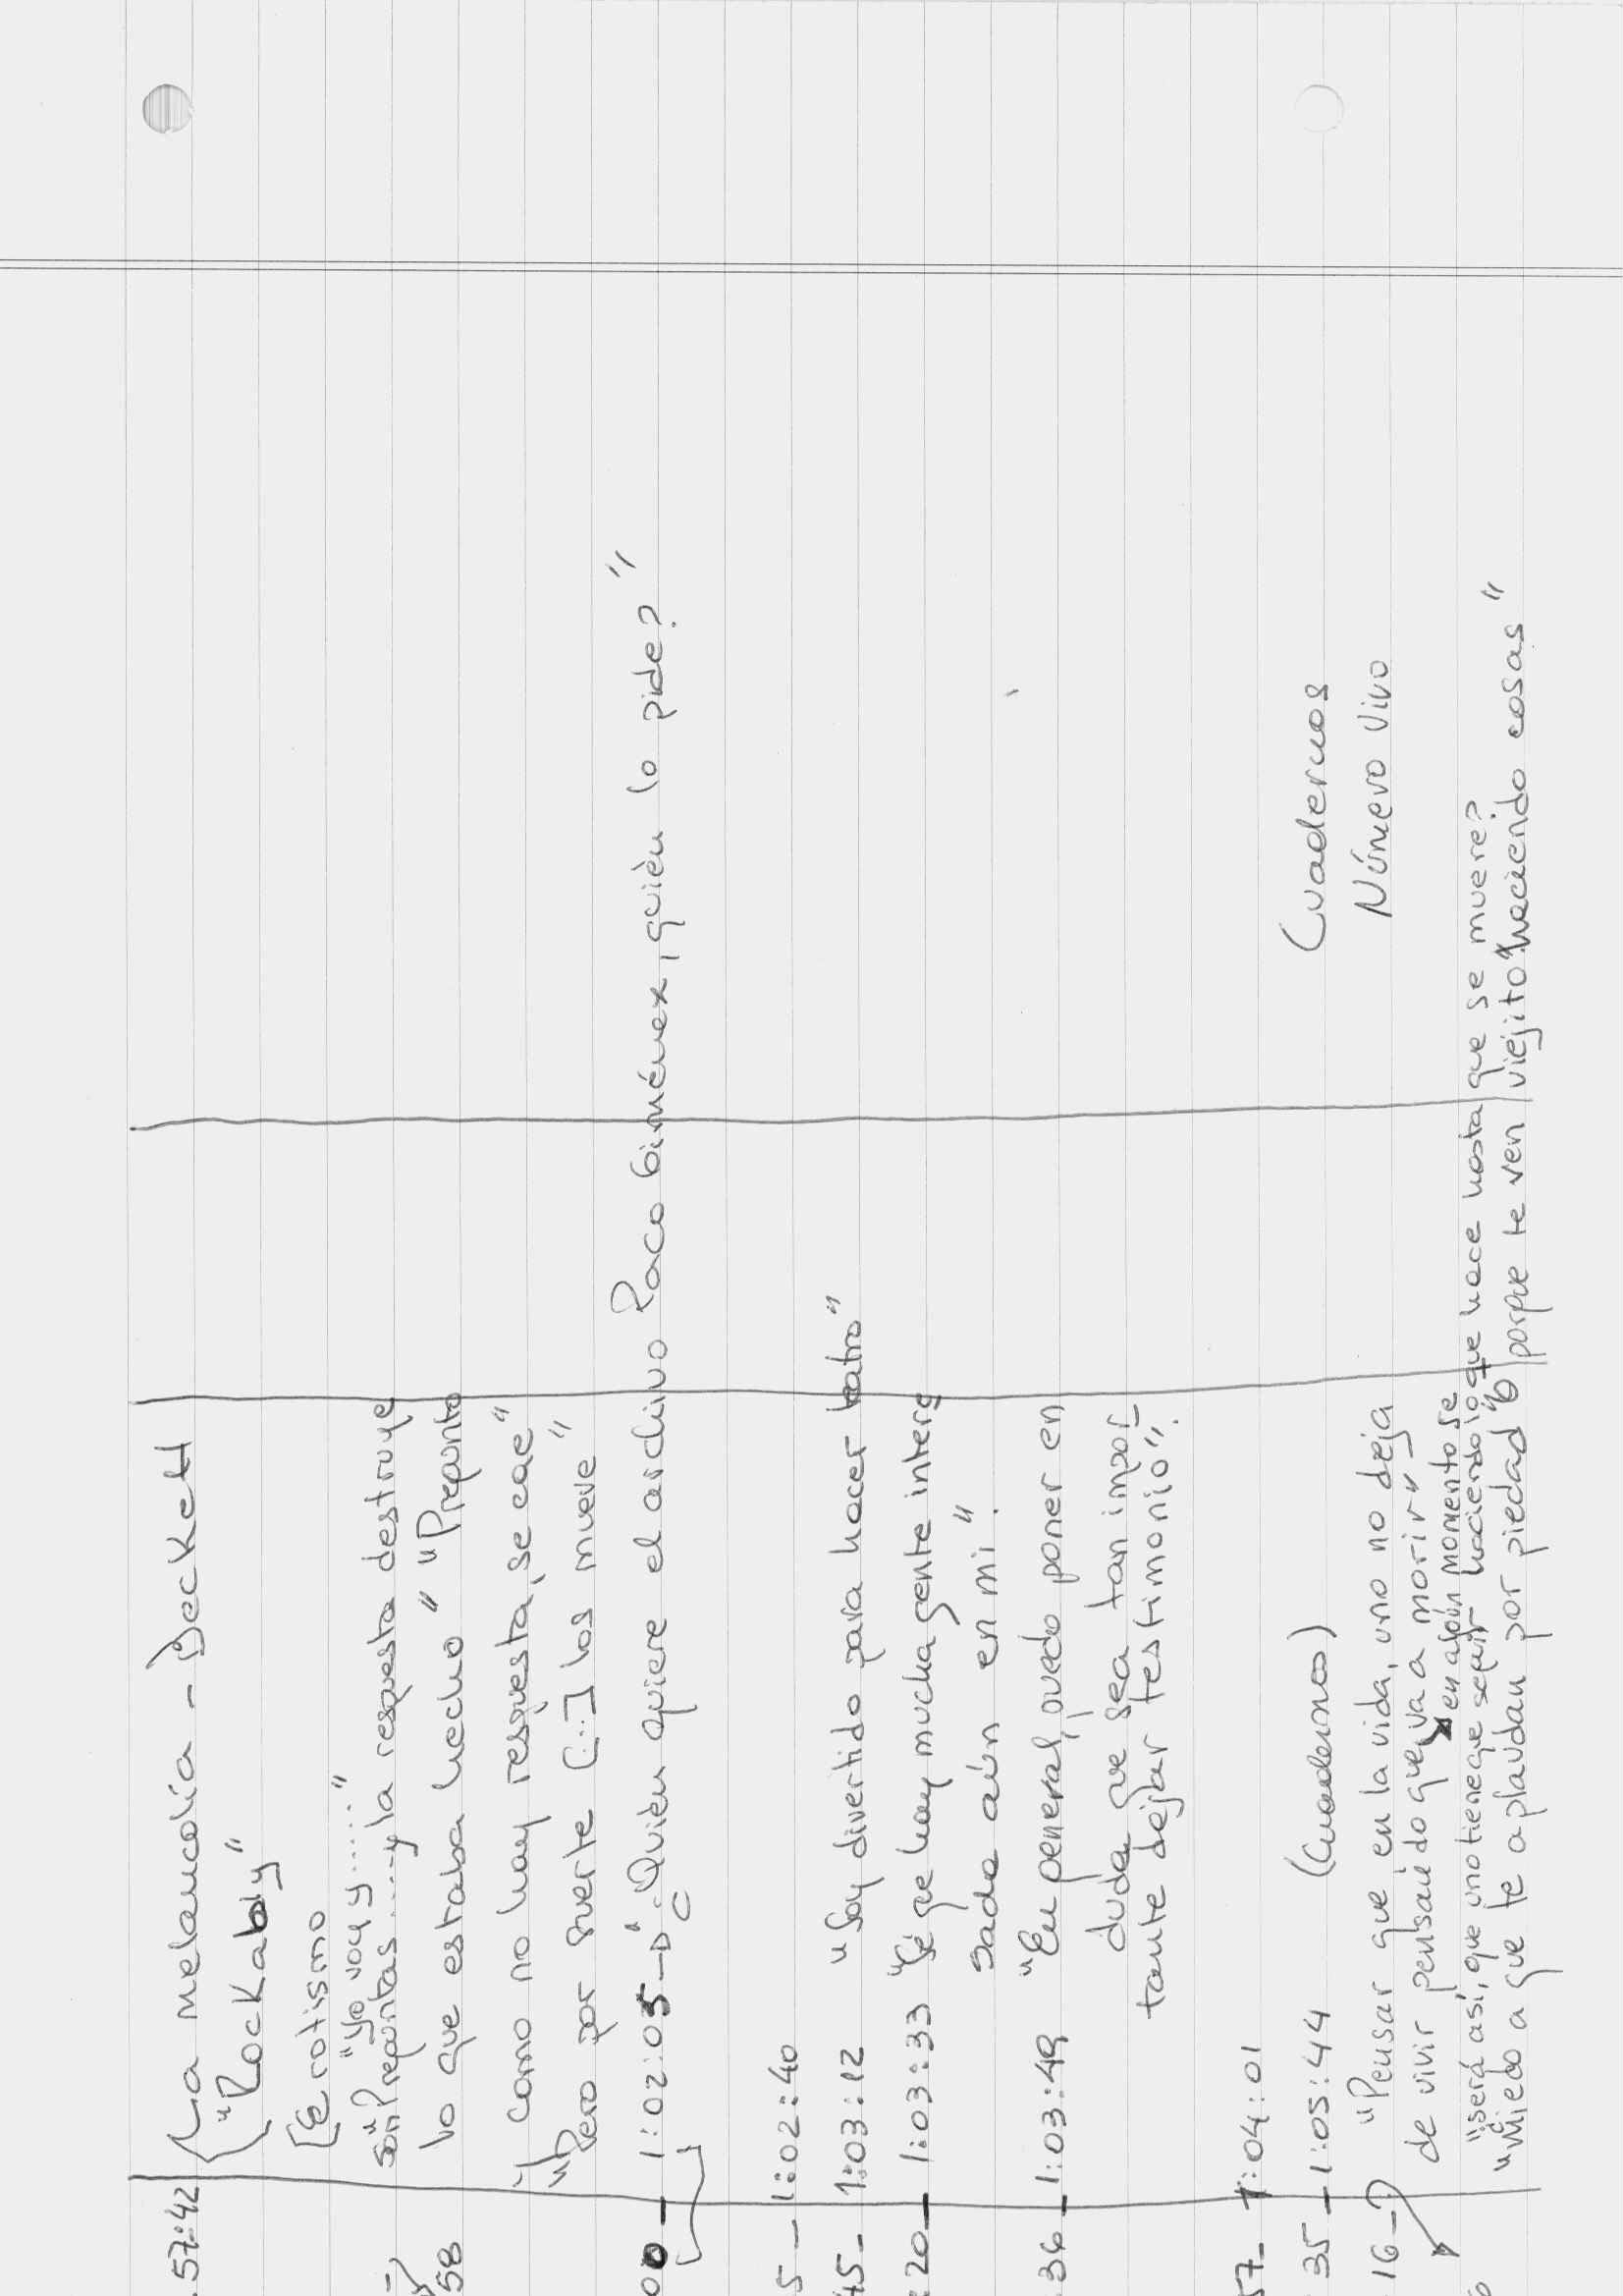 .57:42 La melancolía - Beckett
"Rockabay"
[Erotismo
"yo voy y ....."
son "Preguntas ..... y la respuesta destruye
58 lo que estaba hecho" "Pregunto
y como no hay respuesta, se cae"
"Pero por suerte [...] los mueve"
00 — 1:02:05 "¿Quièn quiere el archivo Paco Giménez, quièn lo pide?"
5 — 1:02:40
45 - 1:03:12 "Soy divertido para hacer teatro"
:20 — 1:03:33 "Sé que hay mucha gente intere
sada aún en mi".
36 — 1:03:49 "En general, puedo poner en
duda que sea tan impor-
tante dejar testimonio".
57 - 1:04:01
35 — 1:05:44 (Cuadernos) Cuadernos
Número Vivo
16 - "Pensar que en la vida, uno no deja
de vivir pensando que va a morir" -
en algún momento se
"será así, que uno tiene que seguir haciendo lo que hace hasta que se muere?
"Miedo a que te aplaudan por piedad" porque te ven viejito "haciendo cosas"